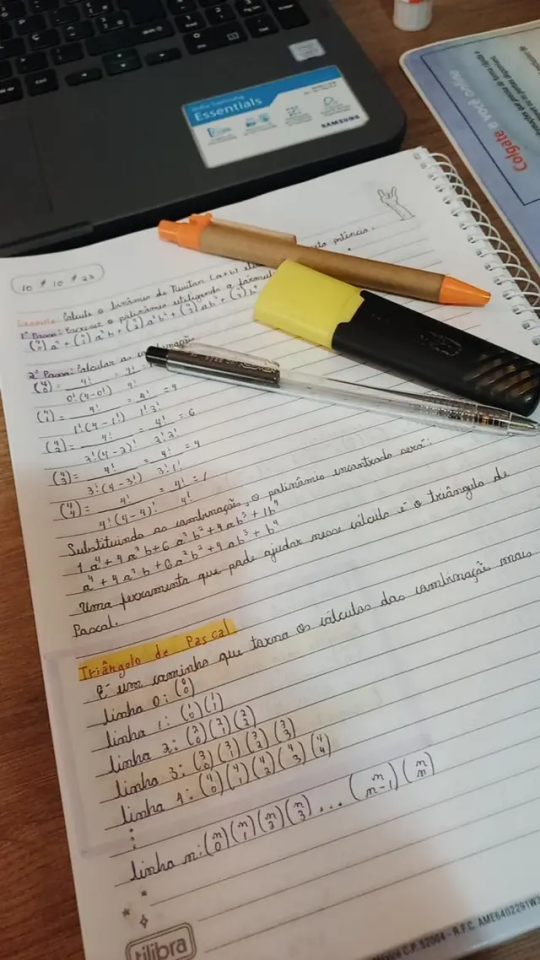 Essentials
SAMSUNG
Colgate e você online
10 # 10 # 23
Exemplo: Calcule o binômio de Newton (a+b)
potência.
1º Passo: Escrever o polinômio utilizando a fórmula
(4 0) a⁴ + (4 1) a³b + (4 2) a²b² + (4 3) ab³ + (4 4) b⁴
2º Passo: Calcular as combinação
(4 0) = 4! / 0!(4-0)! =
(4 1) = 4! / 1!(4-1)! = 4! / 1!3! = 4
(4 2) = 4! / 2!(4-2)! = 4! / 2!2! = 6
(4 3) = 4! / 3!(4-3)! = 4! / 3!1! = 4
(4 4) = 4! / 4!(4-4)! = 4! / 4! = 1
Substituindo as combinação, o polinômio encontrado será:
1a⁴+4a³b+6a²b²+4ab³+1b⁴
a⁴+4a³b+6a²b²+4ab³+b⁴
Uma ferramenta que pode ajudar nesse cálculo é o triângulo de
Pascal.
Triângulo de Pascal
É um caminho que torna os cálculos das combinação mais
linha 0: (0 0)
linha 1: (1 0)(1 1)
linha 2: (2 0)(2 1)(2 2)
linha 3: (3 0)(3 1)(3 2)(3 3)
linha 4: (4 0)(4 1)(4 2)(4 3)(4 4)
linha n: (n 0)(n 1)(n 2)(n 3) ... (n n-1)(n n)
tilibra
C.P. 52004 - R.F.C. AME6402291W3